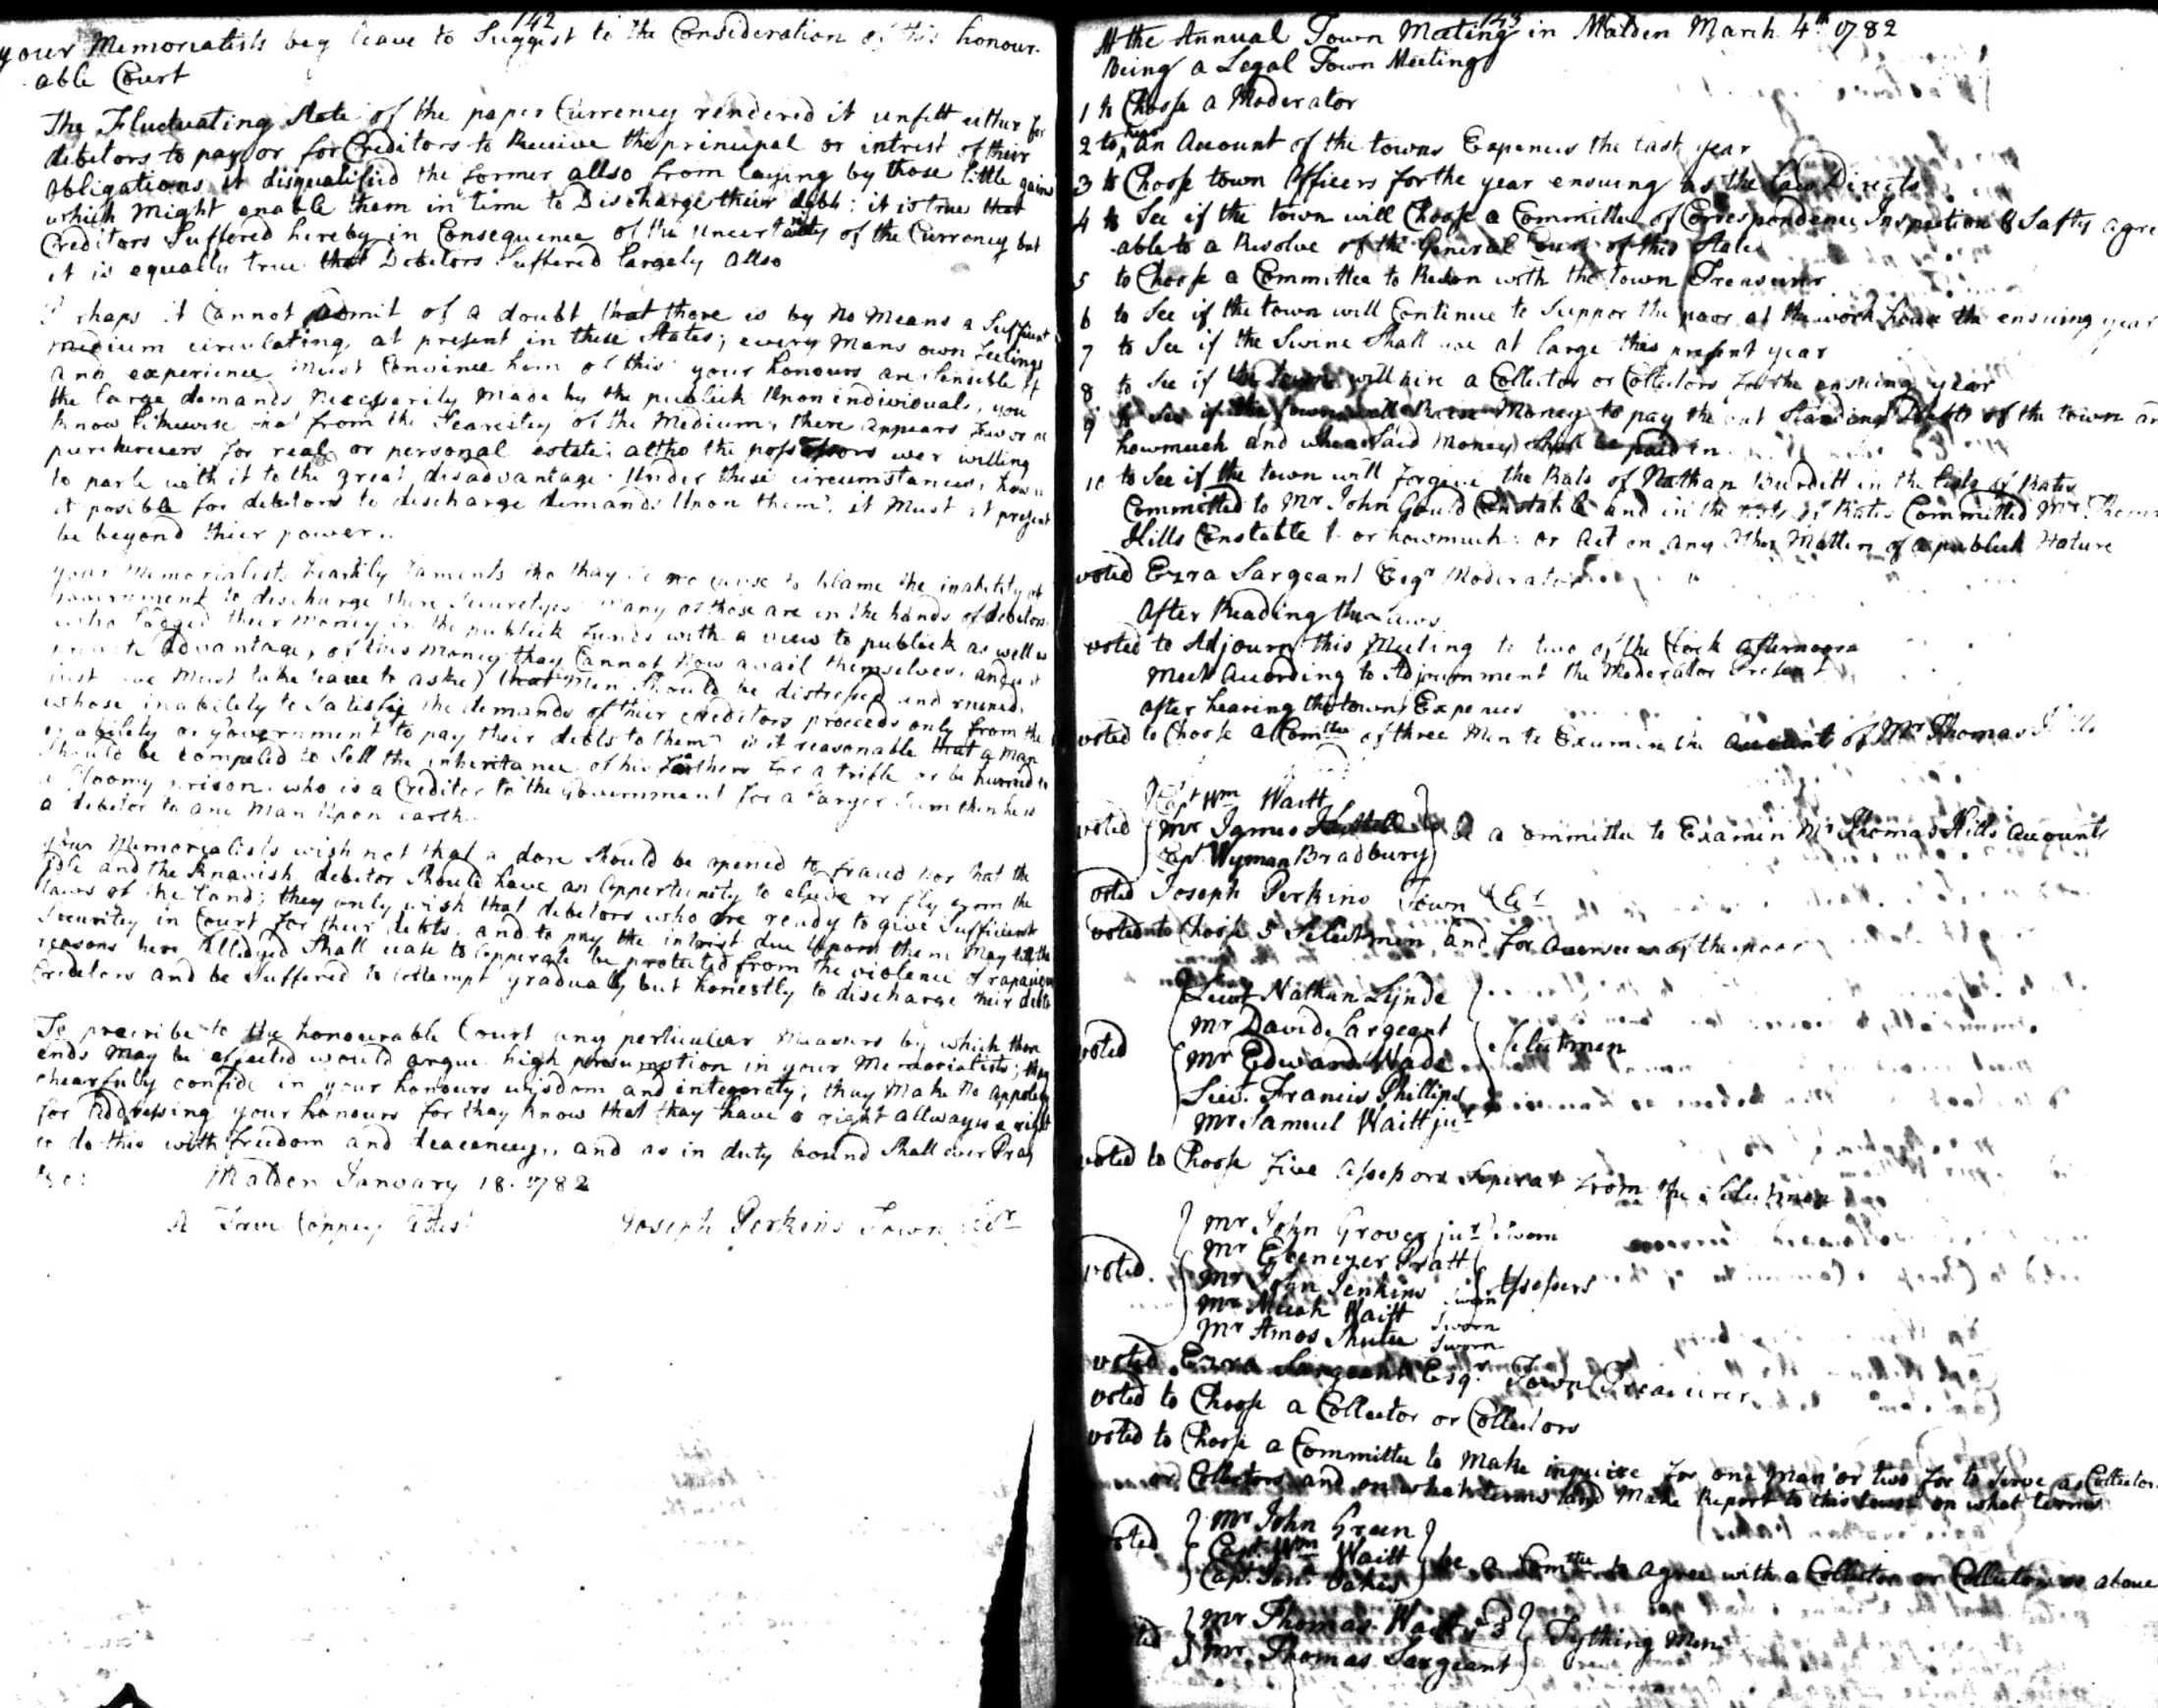 142
your Memorialists beg leave to Suggest to the Consideration of this honour-
able Court
The Fluctuating State of the paper Currency rendered it unfitt either for
debitors to pay or for Creditors to Receive the principal or intrest of their
obligations it disqualifiid the former allso from laying by those little gains
which Might enable them in time to Discharge their debts: it is true that
Creditors Suffered hereby in Consequence of the uncertainty of the Currency but
it is equally true that Debitors Suffered largely allso
it Cannot admit of a doubt that there is by No Means a Suffient
Medium circulating at present in these States; every Mans own feelings
and experience Must Convince him of this your honours are Sensible of
the large demands Necessarily Made by the publick Upon individuals, you
know likewise that from the Scarcitey of the Medium, there appears few or no
purcheasers for real or personal estate; altho the possessors wer willing
to parte with it to the great disadvantage. Under these circumstances, how is
it posible for debitors to discharge demands Upon them? it Must at present
be beyond thier power..
your Memorialists heartily laments tho thay no cause to blame the inability of
Government to discharge there Securetyes Many of these are in the hands of debitors
who lodged their money in the publick funds with a view to publick as well as
private advantage, of this Money thay Cannot Now avail themselves, and is it
just (we Must take leave to aske) that Men Should be distressed and ruened,
whose inability to Satisfie the demands of their creditors proceeds only from the
inability of government to pay their debts to them? is it reasonable that a Man
Should be compeled to Sell the inheritance of his Fathers for a trifle or be hurried to
a Gloomy prison, who is a Creditor to the Government for a larger Sum then he is
a debitor to any Man Upon earth.
your Memorialists wish not that a dore Should be opened to fraud Nor that the
idle and the Knavish debitor Should have an oppertunity to elude or fly from the
laws of the land; they only wish that debitors who are ready to give Sufficient
Securitey in Court for their debts, and to pay the intrist due Upon them May till the
reasons here Alledged Shall to opperate be protected from the violence of rapacious
Creditors and be Suffered to attempt gradually but honestly to discharge their debts
To prscribe to the honourable Court any perticuler Measurs by which these
ends May be effected would argue high presumption in your Memorialists; thay
chearfully confide in your honours wisdom and integeraty; thay Make No appology
for Addressing your honours for thay know that thay have a right allways a right
to do this with freedom and deacencey, and as in duty bound Shall ever Pray
&c:
Malden January 18. 1782
A True Coppey Attest Joseph Perkins Town Clr
143
At the Annual Town Meeting in Malden March 4th 1782
Being a Legal Town Meeting
1 to Choose a Moderator
2 to hear an Account of the towns Expences the last year
3 to Choose town Officers for the year ensuing as the Law Directs
4 to See if the town will Choose a Committee of Correspondence Inspection & Safty agre
able to a Resolve of the General Court of this State
5 to Choose a Committee to Reckon with the town Treasurer
6 to See if the town will Continue to Suppor the poor at the work house the ensuing year
7 to See if the Swine Shall at large this present year
8 to See if the town will hire a Collector or Collectors for the ensuing year
9 to See if the town will Raise Money to pay the out Standing Debts of the town an
howmuch and when Said Money Shall be paid in
10 to See if the town will forgive the Rate of Nathan Burditt in the lists of Rates
Committed to Mr John Gould Constable and in the of Rates Committed Mr. Thomas
Hills Constable or howmuch: or Act on any Other Matters of a publick Nature
voted Ezra Sargeant Esqr Moderator
after Reading the Laws
voted to Adjourn this Meeting to two of the Clock afternoon
meet according to Adjournment the Moderator Present
after hearing the towns Expences
voted to Choose a Comttee of three Men to Examin the accounts of Mr Thomas Hills
Capt Wm Waitt
voted Mr James Kettell be a Committee to Examin Mr Thomas Hills Accounts
Capt Wyman Bradbury
voted Joseph Perkins Town Clt
voted to Choose 5 Selectmen and for overseers of the poor
Lieut Nathan Lynde
Mr David Sargeant
voted Mr Edward Wade Selectmen
Lieut. Francis Phillips
Mr Samuel Waitt jur
voted to Choose five assessors Seperat from the Selectmen
Mr John Grover jur Sworn
Mr Ebenezer Pratt
voted. Mr John Jenkins Sworn Assessors
Mr Micah Waitt Sworn
Mr Amos Shute Sworn
voted Ezra Sargeant Esqr Town Treasurer
voted to Choose a Collector or Collectors
voted to Choose a Committee to Make inquire for one Man or two for to Serve as Collector
or Collectors and on what terms and Make Report to this town on what terms
Mr John Green
voted Capt Wm Waitt be a Comttee to agree with a Collector or Collectors as above
Capt. Jont Oakes
voted Mr Thomas Waitt 3d Tything Men
Mr. Thomas Sargeant